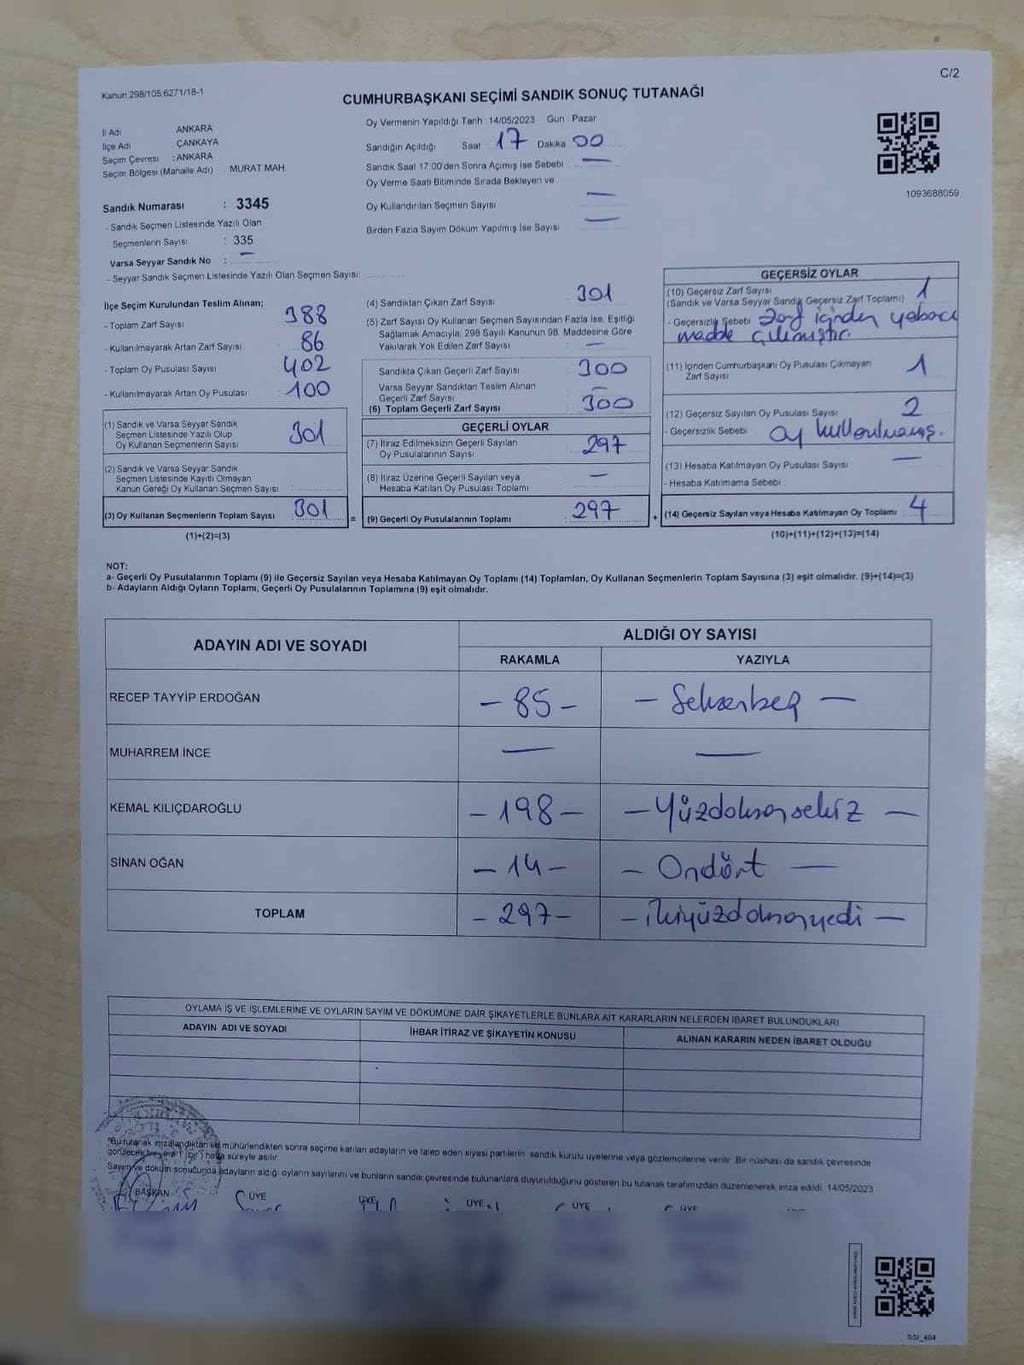 C/2
Kanun 298/105.6271/18-1
CUMHURBAŞKANI SEÇİMİ SANDIK SONUÇ TUTANAĞI
İl Adı ANKARA
İlçe Adı ÇANKAYA
Seçim Çevresi : ANKARA
Seçim Bölgesi (Mahalle Adı) MURAT MAH
Sandık Numarası : 3345
- Sandık Seçmen Listesinde Yazılı Olan
Seçmenlerin Sayısı : 335
Varsa Seyyar Sandık No : —
- Seyyar Sandık Seçmen Listesinde Yazılı Olan Seçmen Sayısı:
Oy Vermenin Yapıldığı Tarih 14/05/2023 Gün Pazar
Sandığın Açıldığı Saat 17 Dakika 00
Sandık Saat 17:00'den Sonra Açımış İse Sebebi —
Oy Verme Saati Bitiminde Sırada Bekleyen ve
Oy Kullandırılan Seçmen Sayısı —
Birden Fazla Sayım Döküm Yapılmış İse Sayısı —
1093688059
İlçe Seçim Kurulundan Teslim Alınan;
- Toplam Zarf Sayısı 388
- Kullanılmayarak Artan Zarf Sayısı 86
- Toplam Oy Pusulası Sayısı 402
- Kullanılmayarak Artan Oy Pusulası 100
(1) Sandık ve Varsa Seyyar Sandık
Seçmen Listesinde Yazılı Olup
Oy Kullanan Seçmenlerin Sayısı 301
(2) Sandık ve Varsa Seyyar Sandık
Seçmen Listesinde Kayıtlı Olmayan
Kanun Gereği Oy Kullanan Seçmen Sayısı
(3) Oy Kullanan Seçmenlerin Toplam Sayısı 301
(1)+(2)=(3)
(4) Sandıktan Çıkan Zarf Sayısı 301
(5) Zarf Sayısı Oy Kullanan Seçmen Sayısından Fazla İse, Eşitliği
Sağlamak Amacıyla, 298 Sayılı Kanunun 98. Maddesine Göre
Yakılarak Yok Edilen Zarf Sayısı —
Sandıkta Çıkan Geçerli Zarf Sayısı 300
Varsa Seyyar Sandıktan Teslim Alınan
Geçerli Zarf Sayısı —
(6) Toplam Geçerli Zarf Sayısı 300
GEÇERLİ OYLAR
(7) İtiraz Edilmeksizin Geçerli Sayılan
Oy Pusulalarının Sayısı 297
(8) İtiraz Üzerine Geçerli Sayılan veya
Hesaba Katılan Oy Pusulası Toplamı —
= (9) Geçerli Oy Pusulalarının Toplamı 297
GEÇERSİZ OYLAR
(10) Geçersiz Zarf Sayısı
(Sandık ve Varsa Seyyar Sandık Geçersiz Zarf Toplamı) 1
- Geçersizlik Sebebi Zarf içinden yabacı
madde çıkmıştır.
(11) İçinden Cumhurbaşkanı Oy Pusulası Çıkmayan
Zarf Sayısı 1
(12) Geçersiz Sayılan Oy Pusulası Sayısı 2
- Geçersizlik Sebebi Oy kullanılmamış.
(13) Hesaba Katılmayan Oy Pusulası Sayısı —
- Hesaba Katılmama Sebebi
+ (14) Geçersiz Sayılan veya Hesaba Katılmayan Oy Toplamı 4
(10)+(11)+(12)+(13)=(14)
NOT:
a- Geçerli Oy Pusulalarının Toplamı (9) ile Geçersiz Sayılan veya Hesaba Katılmayan Oy Toplamı (14) Toplamları, Oy Kullanan Seçmenlerin Toplam Sayısına (3) eşit olmalıdır. (9)+(14)=(3)
b- Adayların Aldığı Oyların Toplamı, Geçerli Oy Pusulalarının Toplamına (9) eşit olmalıdır.
ADAYIN ADI VE SOYADI ALDIĞI OY SAYISI
RAKAMLA YAZIYLA
RECEP TAYYİP ERDOĞAN – 85 – – Seksenbeş –
MUHARREM İNCE — —
KEMAL KILIÇDAROĞLU – 198 – – Yüzdoksansekiz –
SİNAN OĞAN – 14 – – Ondört –
TOPLAM – 297 – – İkiyüzdoksanyedi –
OYLAMA İŞ VE İŞLEMLERİNE VE OYLARIN SAYIM VE DÖKÜMÜNE DAİR ŞİKAYETLERLE BUNLARA AİT KARARLARIN NELERDEN İBARET BULUNDUKLARI
ADAYIN ADI VE SOYADI İHBAR İTİRAZ VE ŞİKAYETİN KONUSU ALINAN KARARIN NEDEN İBARET OLDUĞU
*Bu tutanak imzalandıktan ve mühürlendikten sonra seçime katılan adayların ve talep eden siyasi partilerin sandık kurulu üyelerine veya gözlemcilerine verilir. Bir nüshası da sandık çevresinde
görülecek bir yere 1 (bir) hafta süreyle asılır.
Sayım ve döküm sonucunda adayların aldığı oyların sayılarını ve bunların sandık çevresinde bulunanlara duyurulduğunu gösteren bu tutanak tarafımızdan düzenlenerek imza edildi. 14/05/2023
BAŞKAN ÜYE ÜYE ÜYE ÜYE ÜYE
SSI_404